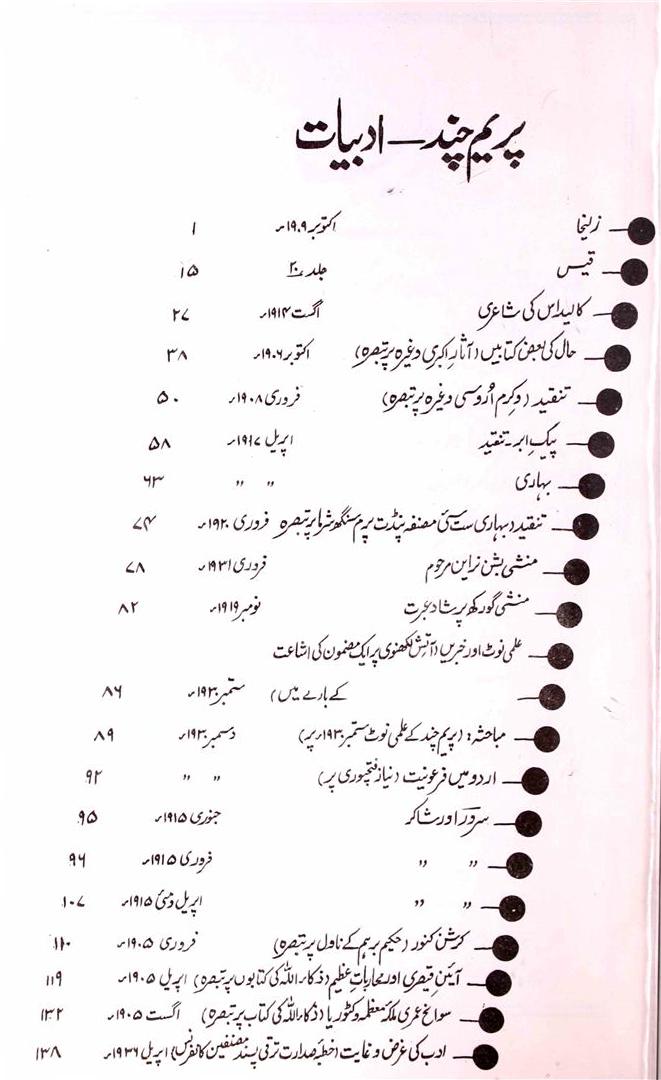 پریم چند — ادبیات
زلیخا اکتوبر ۱۹۰۹ء ۱
قیس جلد ۲۰ ۱۵
کالیداس کی شاعری اگست ۱۹۱۴ء ۲۷
حال کی بعض کتابیں (آثارِ اکبری وغیرہ پر تبصرہ) اکتوبر ۱۹۰۶ء ۳۸
تنقید (وکرم اُروسی وغیرہ پر تبصرہ) فروری ۱۹۰۸ء ۵۰
پیکِ ابر۔تنقید اپریل ۱۹۱۷ء ۵۸
بہاری " " ۶۳
تنقید (بہاری ست سئی مصنفہ پنڈت پدم سنگھ شرما پر تبصرہ فروری ۱۹۲۰ء ۷۴
منشی بشن نراین مرحوم فروری ۱۹۳۱ء ۷۸
منشی گورکھ پرشاد عبرت نومبر ۱۹۱۹ء ۸۲
علمی نوٹ اور خبریں (آتش لکھنوی پر ایک مضمون کی اشاعت
کے بارے میں) ستمبر ۱۹۳۰ء ۸۶
مباحثہ: (پریم چند کے علمی نوٹ ستمبر ۱۹۳۰ء پر) دسمبر ۱۹۳۰ء ۸۹
اردو میں فرعونیت (نیاز فتحپوری پر) " " ۹۲
سرور اور شاکر جنوری ۱۹۱۵ء ۹۵
" " فروری ۱۹۱۵ء ۹۶
" " اپریل و مئی ۱۹۱۵ء ۱۰۷
کرشن کنور (حکیم برہم کے ناول پر تبصرہ) فروری ۱۹۰۵ء ۱۱۰
آئین قیصری اور محارباتِ عظیم (ذکاء اللہ کی کتابوں پر تبصرہ) اپریل ۱۹۰۵ء ۱۱۹
سوانح عمری ملکہ معظمہ وکٹوریا (ذکاء اللہ کی کتاب پر تبصرہ) اگست ۱۹۰۵ء ۱۳۲
ادب کی غرض و غایت (خطبۂ صدارت ترقی پسند مصنفین کانفرنس) اپریل ۱۹۳۶ء ۱۳۸